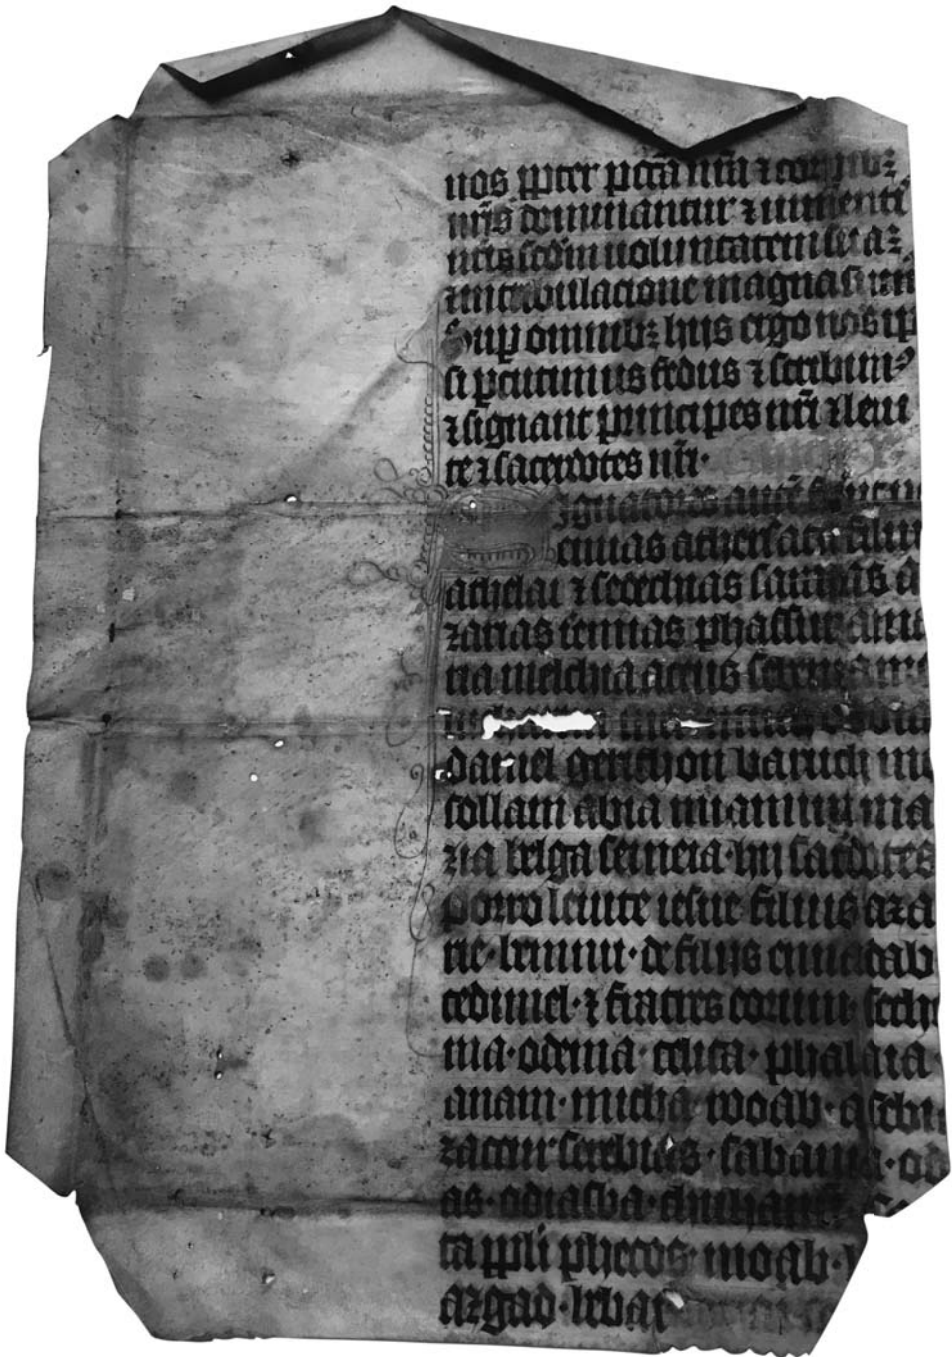 nos ꝓpter pctã nr̃a ⁊ corpibꝫ
nr̃is dominantur ⁊ iumentꝭ
nr̃is scdm uoluntatem suaꝫ
⁊ in tribulacione magna sum
Sup omnibꝫ hiis ergo nos ip
si ꝑcutimus fedus ⁊ scribimꝰ
⁊ signant principes nr̃i ⁊ leui
te ⁊ sacerdotes nr̃i·
Signatores autẽ
emias athersata filiu
athelai ⁊ sedechias saraias a
zarias iemias phassur
ria melchia
daniel genthon baruch mo
sollam abia miamim ma
zia belga semeia· hij sacdotes
porro leuite iesue filius aza
nie· bennui· de filijs enadab
cedimiel· ⁊ fratres eorum· sech
nia· odenia· celita· phalaia·
anam· micha· roob· asebi
zaccur serebias· sabania· od
as· odias
ta ppli pheros· moab·
azgad· bebai